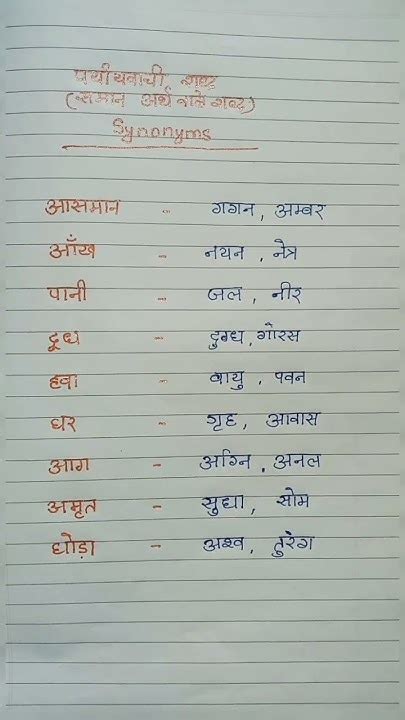 पर्यायवाची शब्द
(समान अर्थ वाले शब्द)
Synonyms
आसमान - गगन, अम्बर
आँख - नयन, नेत्र
पानी - जल, नीर
दूध - दुग्ध, गोरस
हवा - वायु, पवन
घर - गृह, आवास
आग - अग्नि, अनल
अमृत - सुधा, सोम
घोड़ा - अश्व, तुरंग